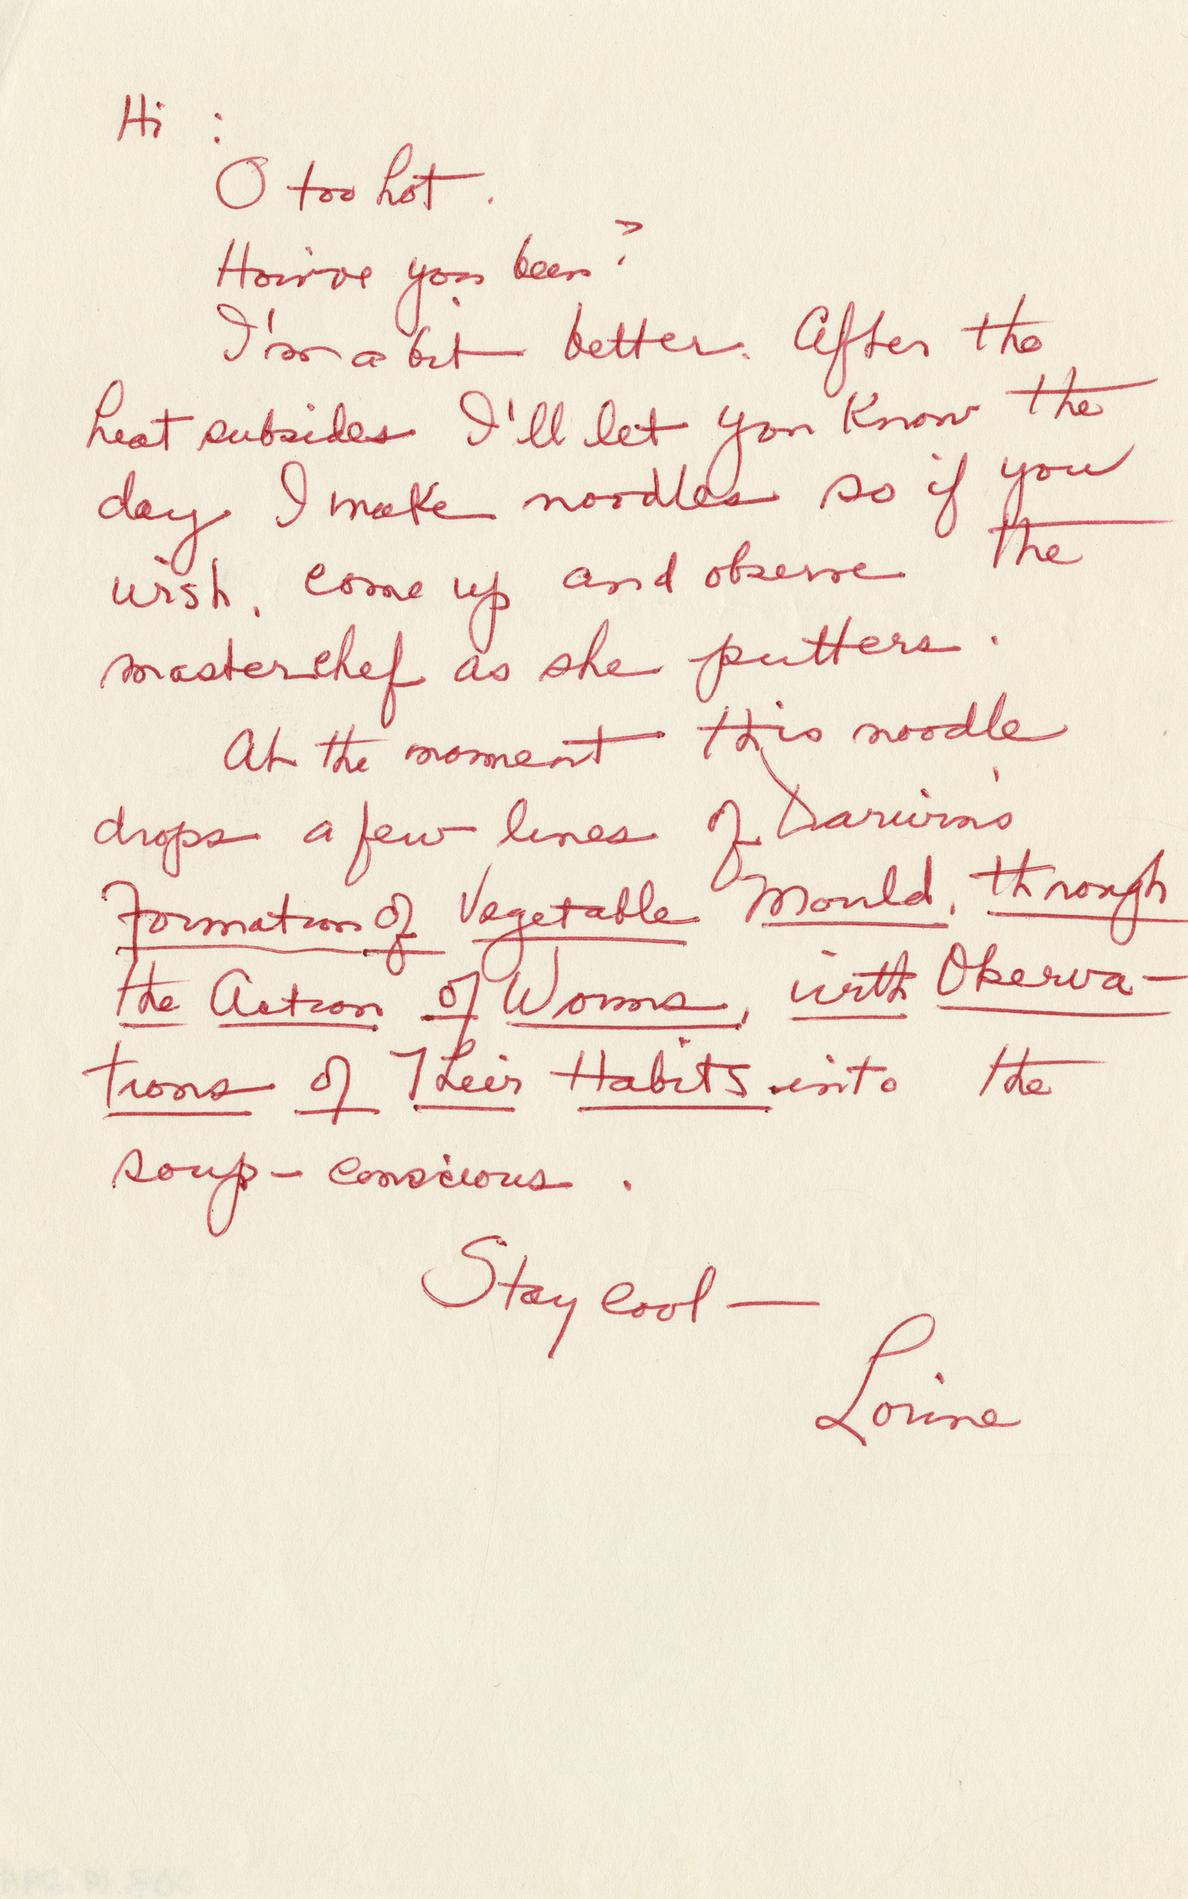 Hi :
O too hot.
How've you been?
I'm a bit better. After the
heat subsides I'll let you know the
day I make noodles so if you
wish, come up and observe the
masterchef as she putters.
At the moment this noodle
drops a few lines of Darwin's
Formation of Vegetable Mould, through
the Action of Worms, with Observa-
tions of Their Habits into the
soup-conscious.
Stay cool —
Lorine